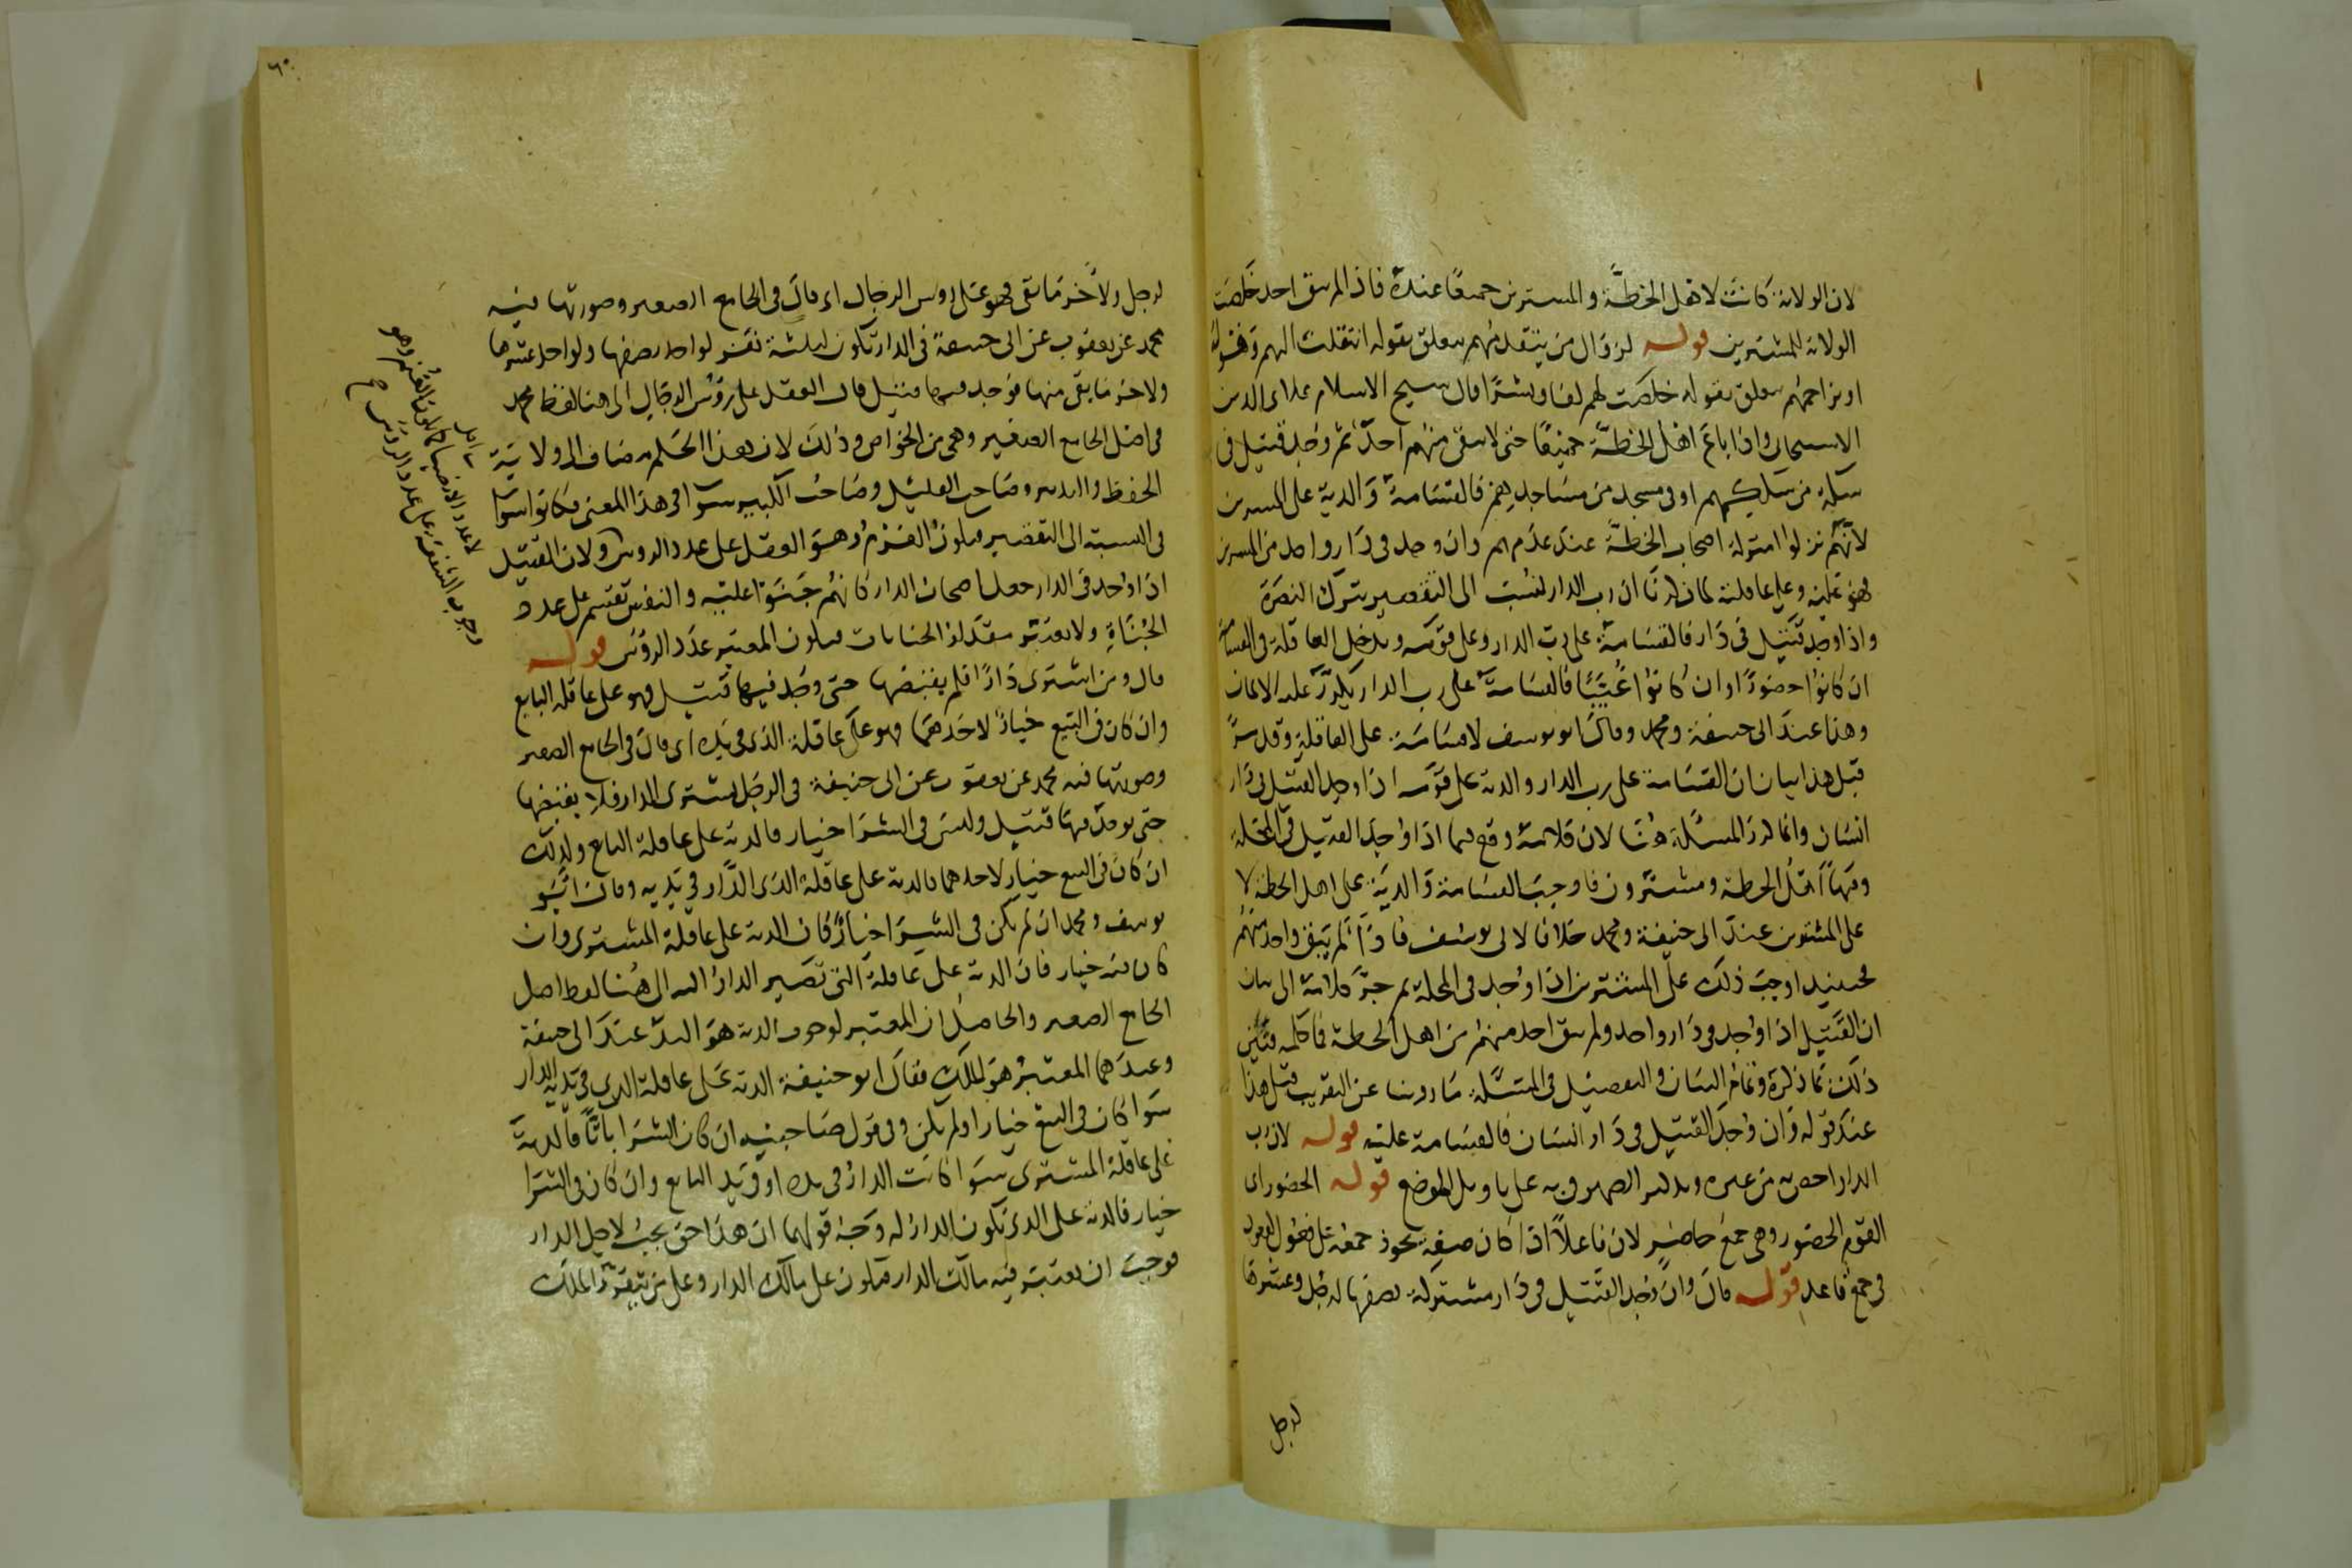 لان الولاية كانت لاهل الخطة والمشترين جميعا عنده فاذا لم يبق احد خلصت
الولاية للمشترين قوله لزوال من يتقدمهم يتعلق بقوله انتقلت اليهم وقوله
او يزاحمهم يتعلق بقوله خلصت لهم لفا ونشرا قال شيخ الاسلام علاء الدين
الاسبيجابي واذا باع اهل الخطة جميعا حتى لا يبقى منهم احد ثم وجد قتيل في
سكة من سككهم او في مسجد من مساجدهم فالقسامة والدية على المشترين
لانهم نزلوا منزلة اصحاب الخطة عند عدمهم وان وجد في دار واحد من المشترين
فهو عليه وعلى عاقلته لما ذكرنا ان رب الدار ينسب الى التقصير بترك النصرة
واذا وجد قتيل في دار فالقسامة على رب الدار وعلى قومه ويدخل العاقلة في القسامة
ان كانوا حضورا وان كانوا غيبا فالقسامة على رب الدار يكرر عليه الايمان
وهذا عند ابي حنيفة ومحمد وقال ابو يوسف لا قسامة على العاقلة وقد مر
قبل هذا بيان ان القسامة على رب الدار والدية على قومه اذا وجد القتيل في دار
انسان وانما كرر المسئلة هنا لان كلامه وقع فيما اذا وجد القتيل في المحلة
وفيها اهل الخطة ومشترون فاوجب القسامة والدية على اهل الخطة لا
على المشترين عند ابي حنيفة ومحمد خلافا لابي يوسف فاذا لم يبق واحد منهم
فحينئذ اوجب ذلك على المشترين اذا وجد في المحلة ثم جر كلامه الى بيان
ان القتيل اذا وجد في دار واحد ولم يبق احد منهم من اهل الخطة فما حكمه فبين
ذلك بما ذكره وتمام البيان والتفصيل في المسئلة ما روينا عن التقريب قبل هذا
عند قوله وان وجد القتيل في دار انسان فالقسامة عليه قوله لان رب
الدار احق به من غيره وتذكير الضمير في به على تاويل الموضع قوله الحضور اي
القوم الحضور وهي جمع حاضر لان فاعلا اذا كان صفة يجوز جمعه على فعول كقعود
في جمع قاعد قوله قال وان وجد القتيل في دار مشتركة نصفها لرجل وعشرها
لرجل
٦٠
لرجل ولاخر ما بقي فهو على رؤس الرجال اي قال في الجامع الصغير وصورتها فيه
محمد عن يعقوب عن ابي حنيفة في الدار تكون لثلثة نفر لواحد نصفها ولواحد عشرها
ولاخر ما بقي منها فوجد فيها قتيل قال العقل على رؤس الرجال الى هنا لفظ محمد
في اصل الجامع الصغير وهي من الخواص وذلك لان هذا الحكم مضاف الى ولاية
الحفظ والتدبير وصاحب القليل وصاحب الكثير سوا في هذا المعنى فكانوا سوا
في النسبة الى التقصير فيكون الغرم وهو العقل على عدد الرؤس ولان القتيل
اذا وجد في الدار جعل اصحاب الدار كانهم جنوا عليه والنفس تقسم على عدد
الجناة ولا يعتبر مقدار الجنايات فيكون المعتبر عدد الرؤس قوله
قال ومن اشترى دارا فلم يقبضها حتى وجد فيها قتيل فهو على عاقلة البايع
وان كان في البيع خيار لاحدهما فهو على عاقلة الذي في يده اي قال في الجامع الصغير
وصورتها فيه محمد عن يعقوب عن ابي حنيفة في الرجل يشتري الدار فلا يقبضها
حتى يوجد فيها قتيل وليس في الشرا خيار فالدية على عاقلة البايع وكذلك
ان كان في البيع خيار لاحدهما فالدية على عاقلة الذي الدار في يديه وقال ابو
يوسف ومحمد ان لم يكن في الشرا خيار فان الدية على عاقلة المشتري وان
كان فيه خيار فان الدية على عاقلة التي تصير الدار اليه الى هنا لفظ اصل
الجامع الصغير والحاصل ان المعتبر لوجوب الدية هو اليد عند ابي حنيفة
وعندهما المعتبر هو الملك فقال ابو حنيفة الدية على عاقلة الذي في يديه الدار
سوا كان في البيع خيار او لم يكن وفي قول صاحبيه ان كان الشرا باتا فالدية
على عاقلة المشتري سوا كانت الدار في يده او في يد البايع وان كان في الشرا
خيار فالدية على الذي تكون الدار له وجه قولهما ان هذا حق يجب لاجل الدار
فوجب ان يعتبر فيه مالك الدار فيكون على مالك الدار وعلى من يتقرر الملك
لا عدد الانصبا كما يكون الغنم وهو
وجوب الشفعة على عدد الرؤس صح